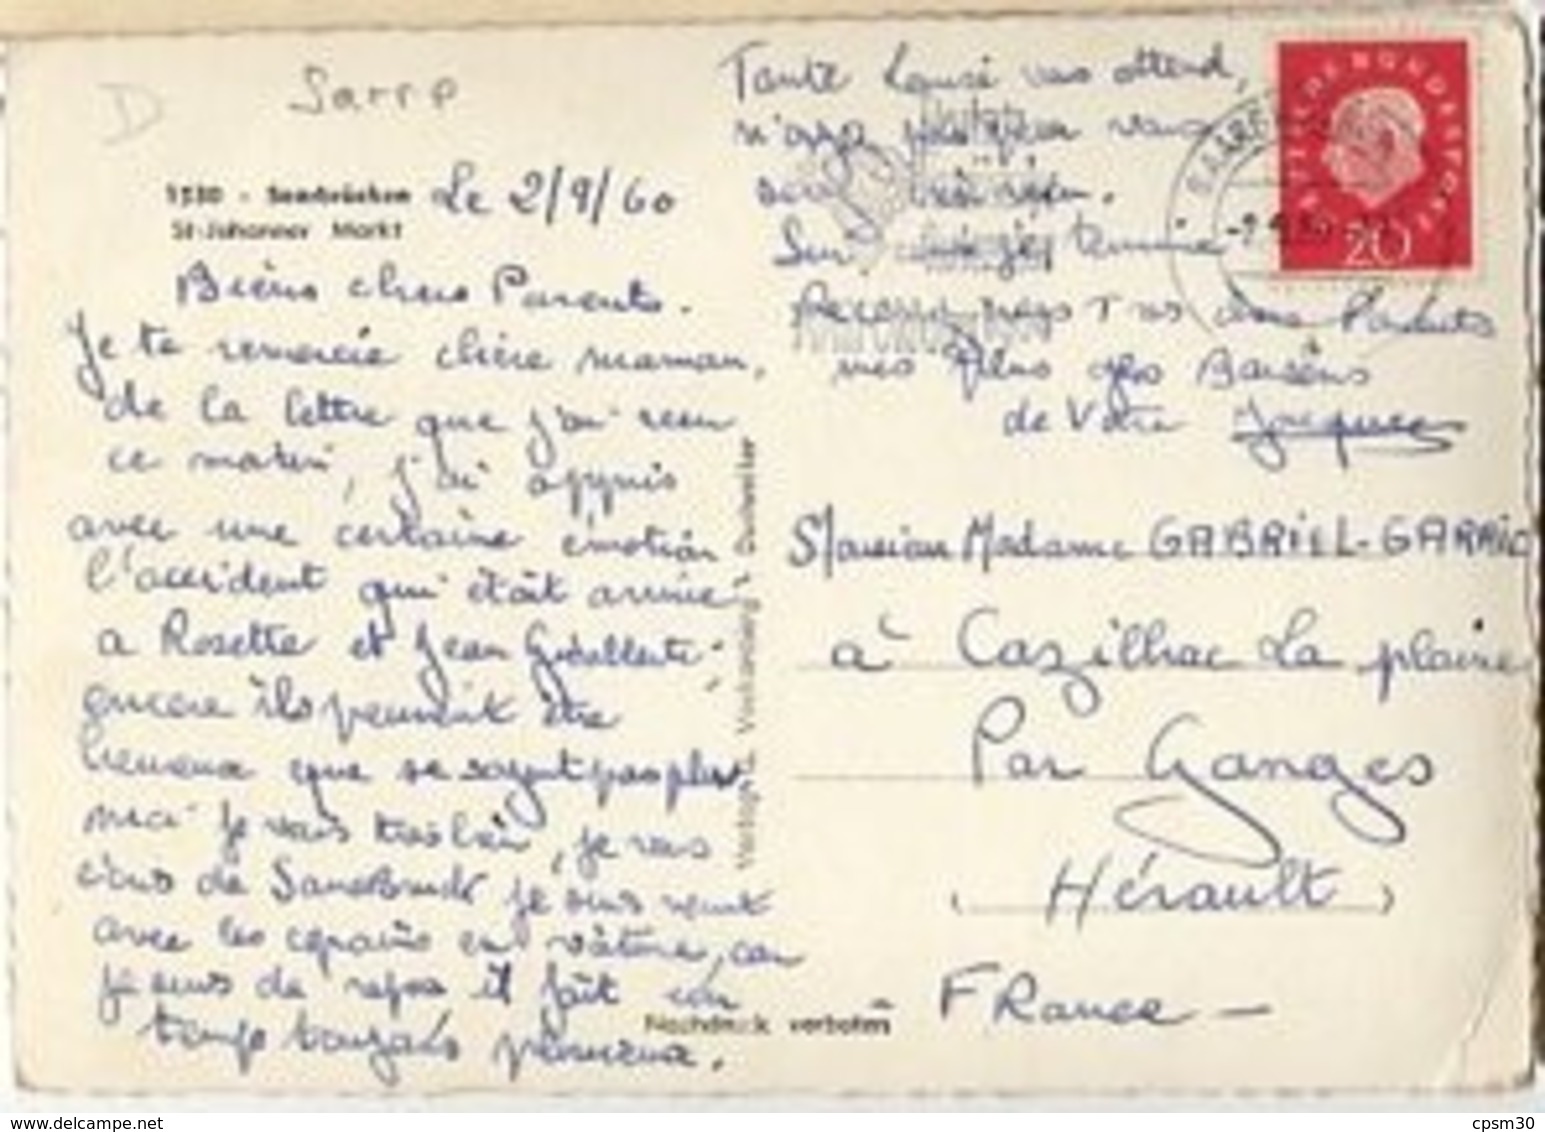 D
Sarre
1530 - Saarbrücken Le 2/9/60
St-Johanner Markt
Biens chers Parents.
Je te remercie chère maman,
de la lettre que j'ai reçu
ce matin, j'ai appris
avec une certaine émotion
l'accident qui était arrivé
a Rosette et Jean
encore ils peuvent être
heureux que se soyent pas plus
moi je vais très bien, je
de je suis
avec les copains en voiture, car
je suis de repos il fait un
temps toujours pluvieux.
Verlag Dudweiler
Nachdruck verboten
Tante vous attend,
n'ayez pas peur vous
serez très bien.
Sur je termine
Recevez mes Parents
mes Plus gros Baisérs
de Votre Jacques
DEUTSCHE BUNDESPOST
20
Monsieur Madame GABRIEL-GARRIC
à Cazilhac La plaine
Par Ganges
(Hérault)
FRance—
www.delcampe.net
cpsm30